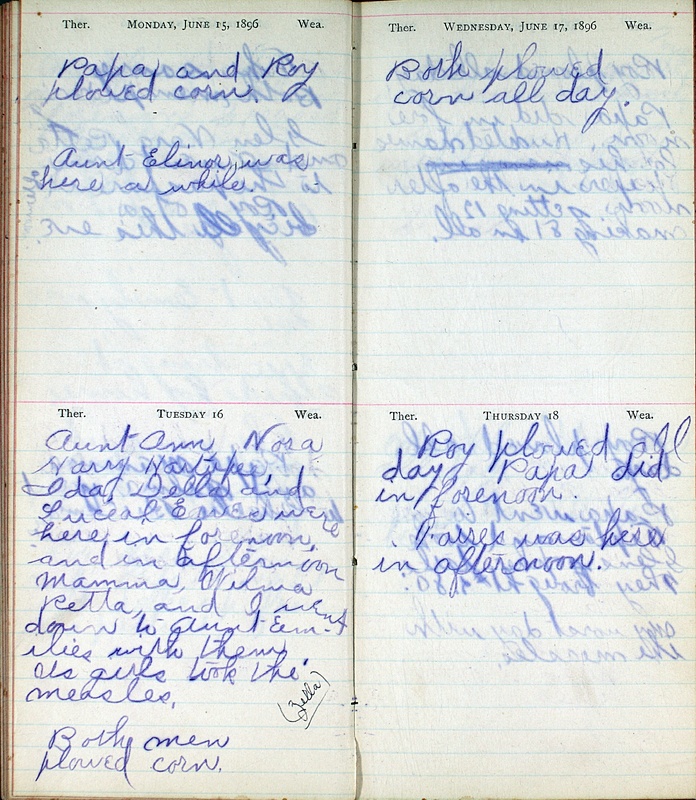 Ther. MONDAY, JUNE 15, 1896 Wea.
Papa and Roy
plowed corn.
Aunt Elinor was
here a while.
Ther. TUESDAY 16 Wea.
Aunt Ann, Nora
Harry Hartupee,
Ida, Della and
Luceal Eaves were
here in forenoon,
and in afternoon
Mamma, Wilma
Retta, and I went
down to Aunt Em-
ilies with them.
Us girls took the
measles.
(Zella)
Both men
plowed corn.
Ther. WEDNESDAY, JUNE 17, 1896 Wea.
Both plowed
corn all day.
Ther. THURSDAY 18 Wea.
Roy plowed all
day Papa did
in forenoon.
was here
in afternoon.